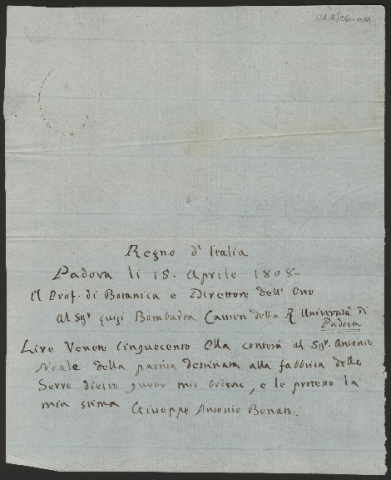 Regno d'Italia
Padova li 15. Aprile 1808-
Il Prof. di Botanica e Direttore dell' Orto
Al Sigr Luigi Bombarda Cassier della R Università di
Padova
Lire Venete Cinquecento Ella conterà al Sigr. Antonio
Noale della partita destinata alla fabbrica delle
Serre dietro questo mio ordine, e le protesto la
mia stima Giuseppe Antonio Bonato